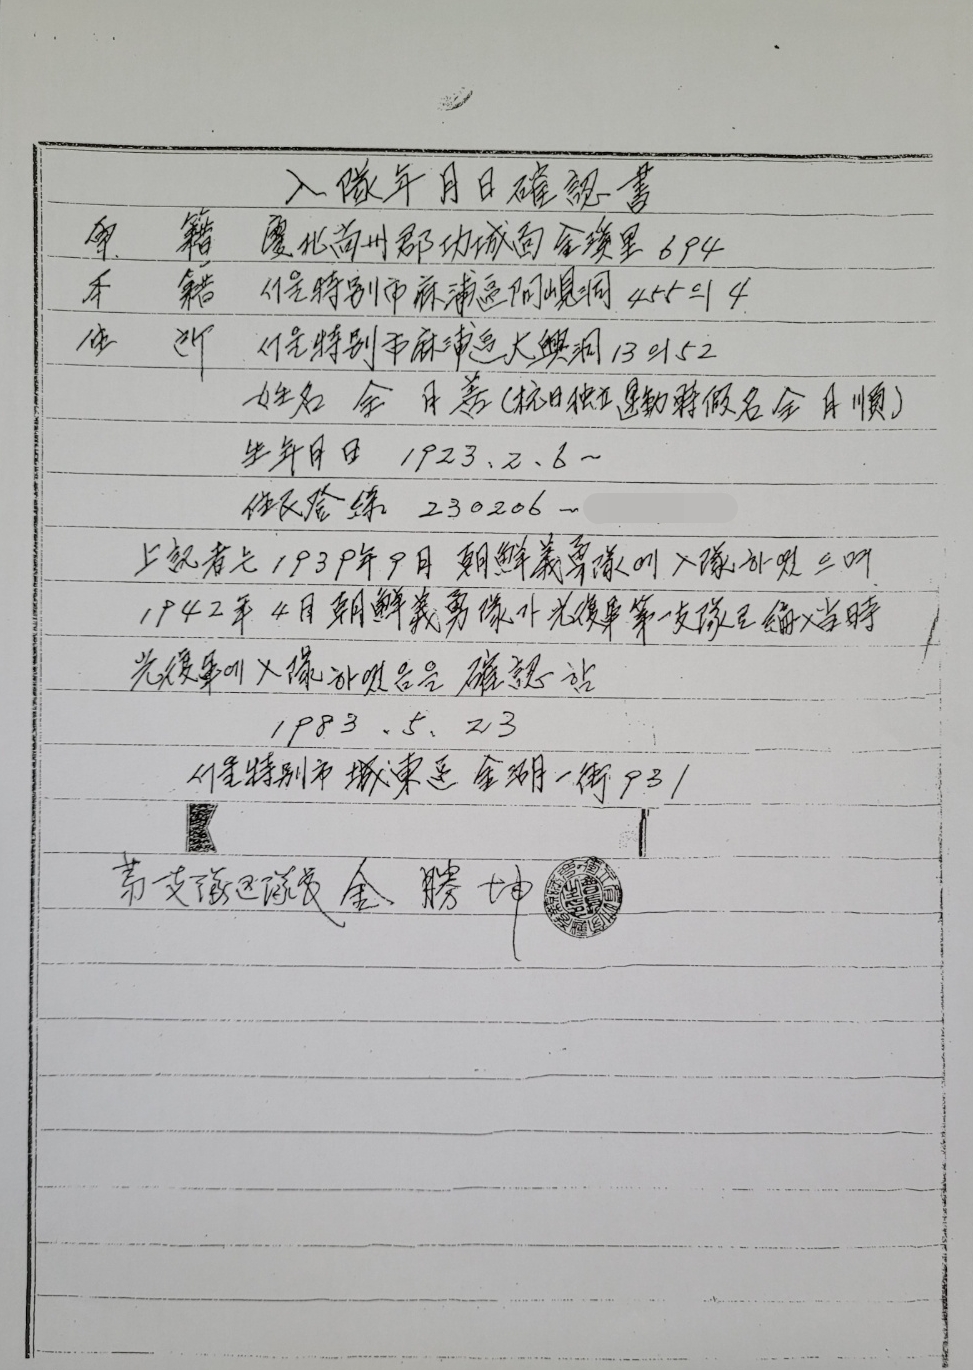 入隊年月日確認書
原 籍 慶北尙州郡功城面金溪里 694
本 籍 서울特別市麻浦區阿峴洞 455의 4
住 所 서울特別市麻浦區大興洞 13의52
姓名 金 月 善 (抗日独立運動時假名 金 月 順)
生年月日 1923.2.6~
住民登錄 230206~
上記者는 1939年9月 朝鮮義勇隊에 入隊하였으며
1942年 4月 朝鮮義勇隊가 光復軍第一支隊로 編入当時
光復軍에 入隊하였음을 確認함
1983.5.23
서울特別市 城東區 金湖一街 931
第一支隊区隊長 金 勝 坤